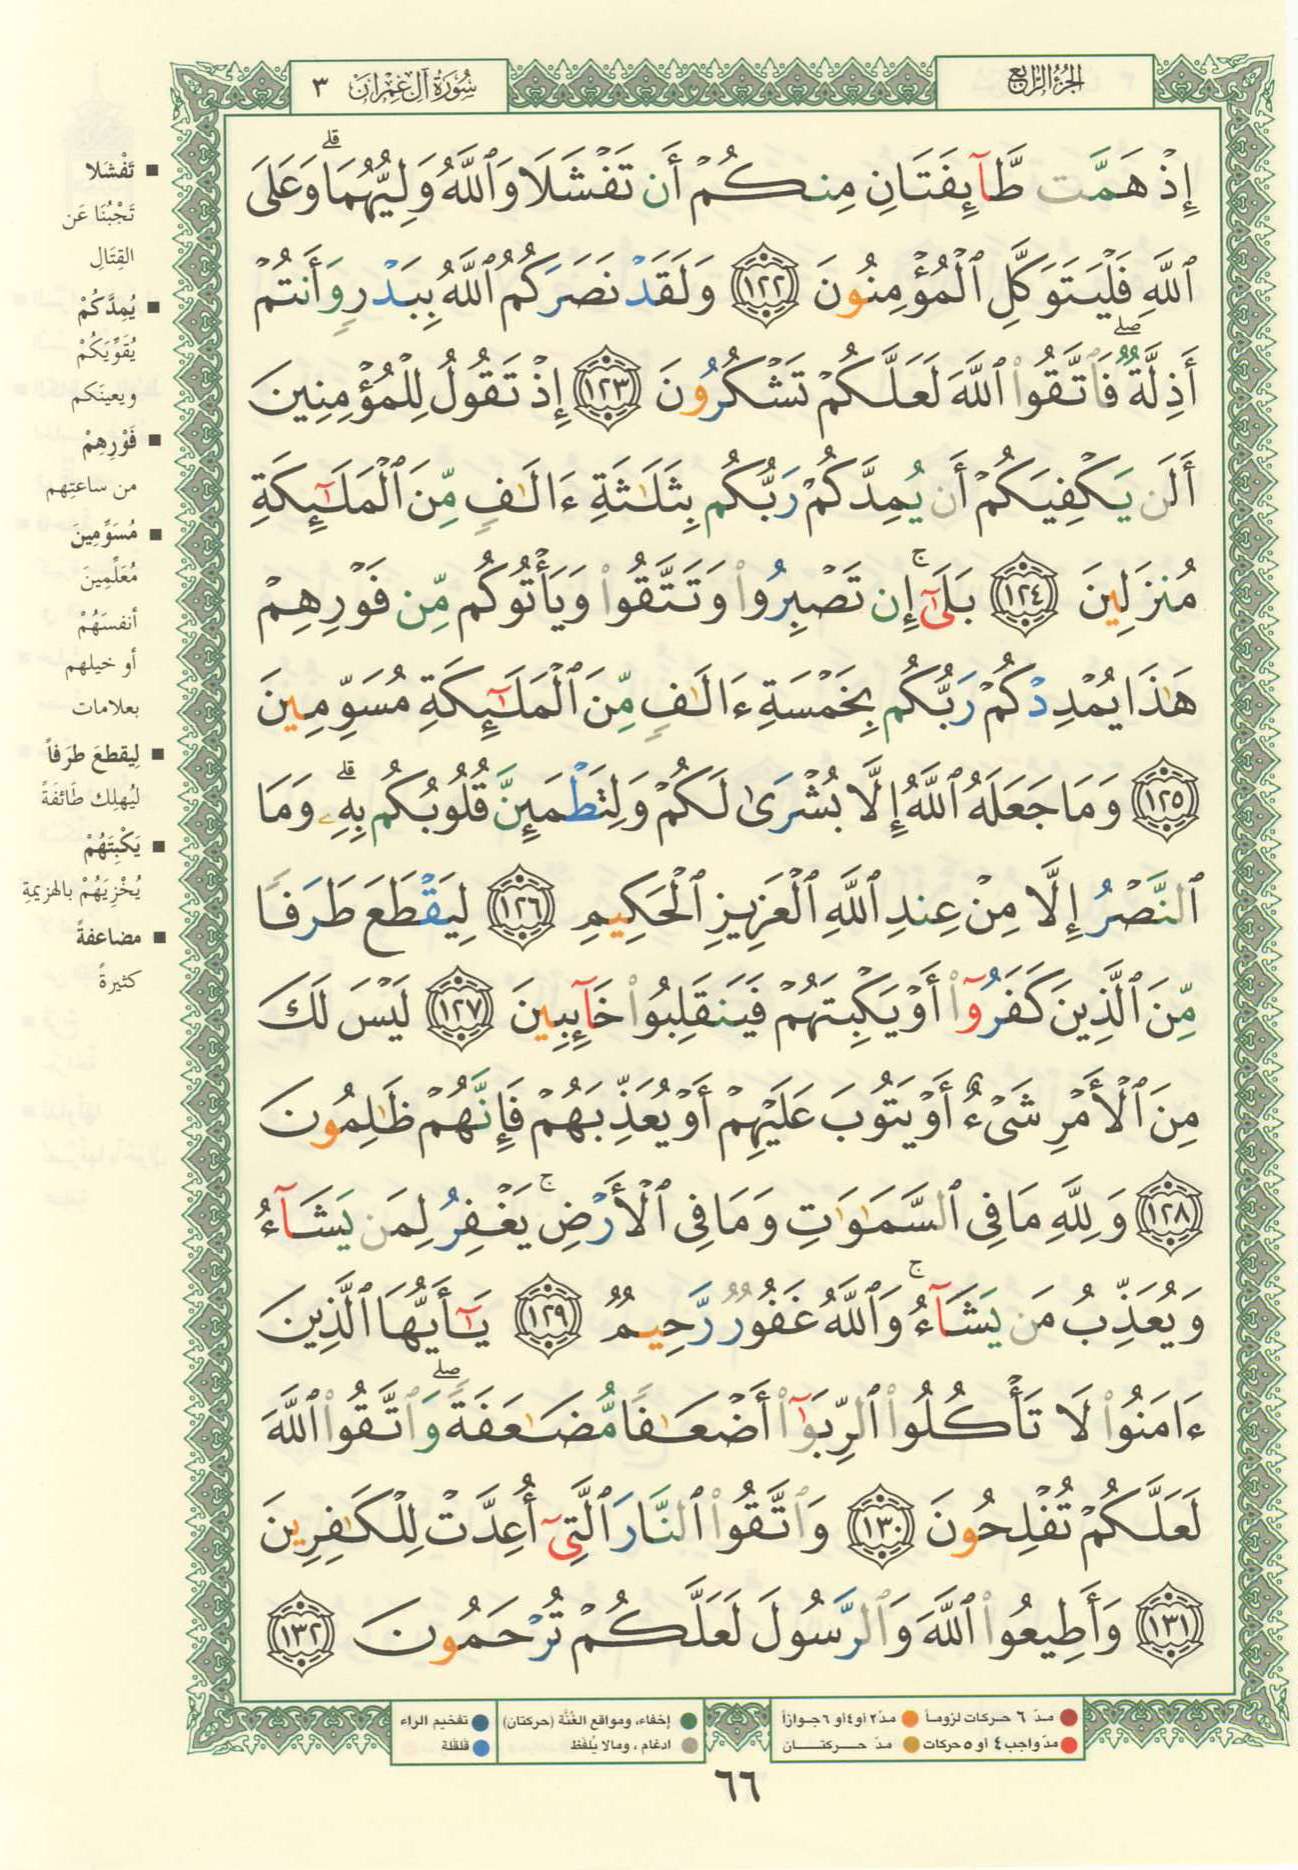 الجزء الرابع
سُورَةُ آلِ عِمْرَانَ ٣
إِذْ هَمَّت طَّآئِفَتَانِ مِنكُمْ أَن تَفْشَلَا وَٱللَّهُ وَلِيُّهُمَا ۗ وَعَلَى
ٱللَّهِ فَلْيَتَوَكَّلِ ٱلْمُؤْمِنُونَ ١٢٢ وَلَقَدْ نَصَرَكُمُ ٱللَّهُ بِبَدْرٍ وَأَنتُمْ
أَذِلَّةٌ ۖ فَٱتَّقُوا۟ ٱللَّهَ لَعَلَّكُمْ تَشْكُرُونَ ١٢٣ إِذْ تَقُولُ لِلْمُؤْمِنِينَ
أَلَن يَكْفِيَكُمْ أَن يُمِدَّكُمْ رَبُّكُم بِثَلَٰثَةِ ءَالَٰفٍ مِّنَ ٱلْمَلَٰٓئِكَةِ
مُنزَلِينَ ١٢٤ بَلَىٰٓ ۚ إِن تَصْبِرُوا۟ وَتَتَّقُوا۟ وَيَأْتُوكُم مِّن فَوْرِهِمْ
هَٰذَا يُمْدِدْكُمْ رَبُّكُم بِخَمْسَةِ ءَالَٰفٍ مِّنَ ٱلْمَلَٰٓئِكَةِ مُسَوِّمِينَ
١٢٥ وَمَا جَعَلَهُ ٱللَّهُ إِلَّا بُشْرَىٰ لَكُمْ وَلِتَطْمَئِنَّ قُلُوبُكُم بِهِۦ ۗ وَمَا
ٱلنَّصْرُ إِلَّا مِنْ عِندِ ٱللَّهِ ٱلْعَزِيزِ ٱلْحَكِيمِ ١٢٦ لِيَقْطَعَ طَرَفًا
مِّنَ ٱلَّذِينَ كَفَرُوٓا۟ أَوْ يَكْبِتَهُمْ فَيَنقَلِبُوا۟ خَآئِبِينَ ١٢٧ لَيْسَ لَكَ
مِنَ ٱلْأَمْرِ شَىْءٌ أَوْ يَتُوبَ عَلَيْهِمْ أَوْ يُعَذِّبَهُمْ فَإِنَّهُمْ ظَٰلِمُونَ
١٢٨ وَلِلَّهِ مَا فِى ٱلسَّمَٰوَٰتِ وَمَا فِى ٱلْأَرْضِ ۚ يَغْفِرُ لِمَن يَشَآءُ
وَيُعَذِّبُ مَن يَشَآءُ ۚ وَٱللَّهُ غَفُورٌ رَّحِيمٌ ١٢٩ يَٰٓأَيُّهَا ٱلَّذِينَ
ءَامَنُوا۟ لَا تَأْكُلُوا۟ ٱلرِّبَوٰٓا۟ أَضْعَٰفًا مُّضَٰعَفَةً ۖ وَٱتَّقُوا۟ ٱللَّهَ
لَعَلَّكُمْ تُفْلِحُونَ ١٣٠ وَٱتَّقُوا۟ ٱلنَّارَ ٱلَّتِىٓ أُعِدَّتْ لِلْكَٰفِرِينَ
١٣١ وَأَطِيعُوا۟ ٱللَّهَ وَٱلرَّسُولَ لَعَلَّكُمْ تُرْحَمُونَ ١٣٢
■ تَفْشَلا
تَجْبُنَا عَن
القِتَالِ
■ يُمِدَّكُمْ
يُقَوِّيَكُمْ
ويعينَكم
■ فَوْرِهِمْ
من ساعتِهم
■ مُسَوِّمِينَ
مُعَلِّمِينَ
أنفسَهُمْ
أو خيلهم
بعلامات
■ لِيقطعَ طرَفاً
ليُهلِك طَائفَةً
■ يَكْبِتَهُمْ
يُخْزِيَهُمْ بالهزيمةِ
■ مضاعفةً
كثيرةً
مدّ ٦ حركات لزوماً
مدّ ٢ أو ٤ أو ٦ جوازاً
إخفاء، ومواقع الغُنَّة (حركتان)
تفخيم الراء
مدّ واجب ٤ أو ٥ حركات
مدّ حركتان
ادغام ، ومالا يُلفظ
قلقلة
٦٦